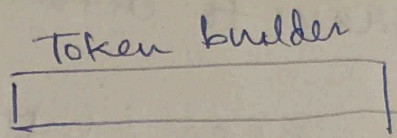 Token builder